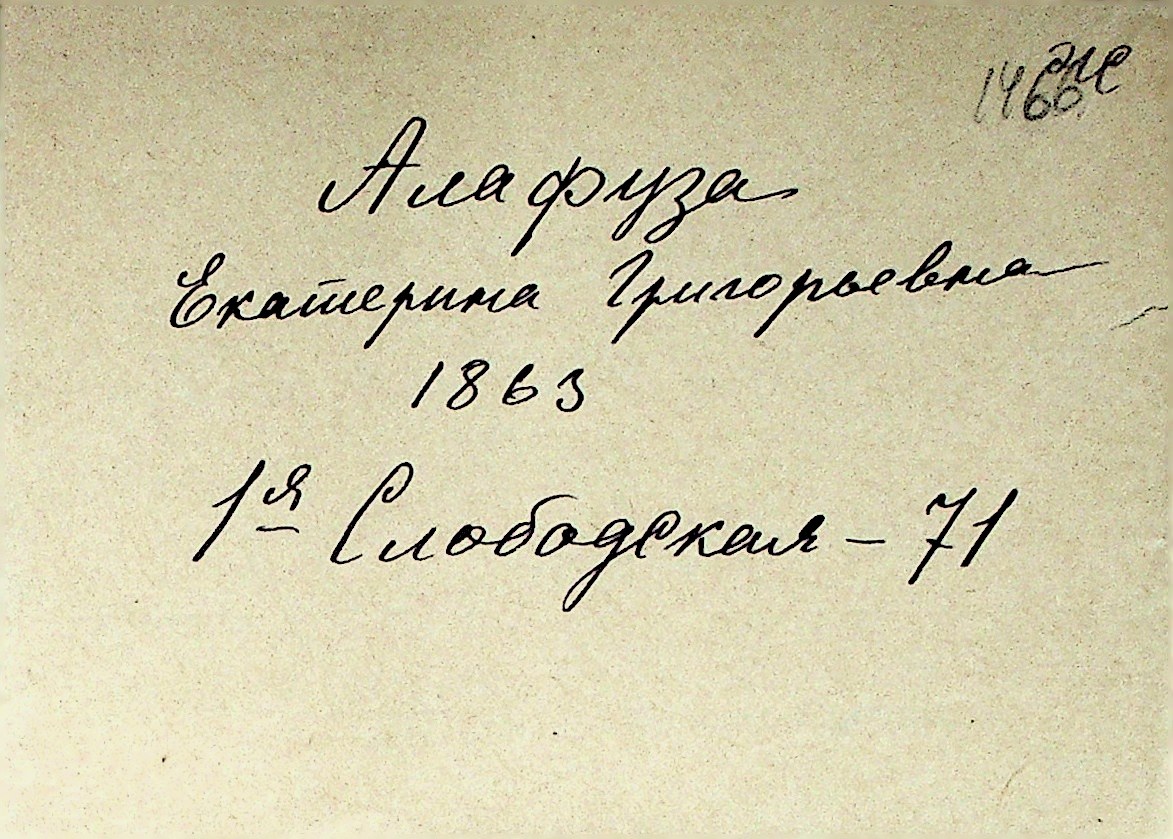 Алафуза
Екатерина Григорьевна
1863
1я Слободская – 71